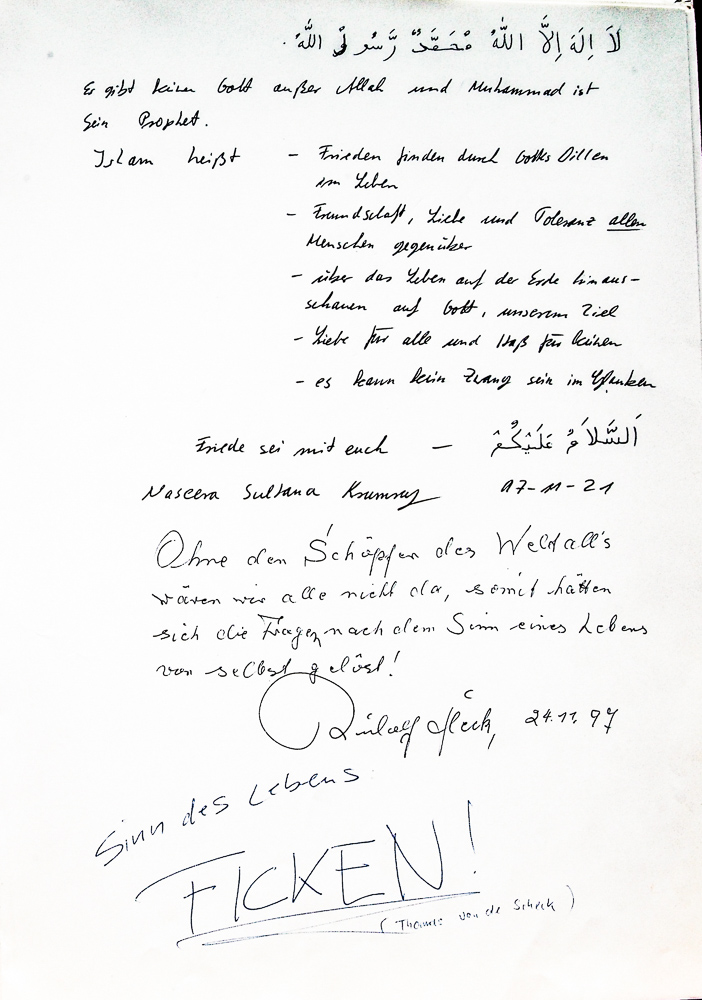 لَا إِلَهَ إِلَّا اللّٰهُ مُحَمَّدٌ رَّسُولُ اللّٰهُ.
Er gibt keinen Gott außer Allah und Muhammad ist
Sein Prophet.
Islam heißt - Frieden finden durch Gottes Willen
im Leben
- Freundschaft, Liebe und Toleranz allen
Menschen gegenüber
- über das Leben auf der Erde hinaus-
schauen auf Gott, unserem Ziel
- Liebe für alle und Haß für keinen
- es kann kein Zwang sein im Glauben
Friede sei mit euch — اَلسَّلَامُ عَلَيْكُمْ
Naseera Sultana 97-11-21
Ohne den Schöpfer des Weltall's
wären wir alle nicht da, somit hätten
sich die Fragen nach dem Sinn eines Lebens
von selbst gelöst!
24.11.97
Sinn des Lebens
FICKEN!
(Thomas von de Scheck)